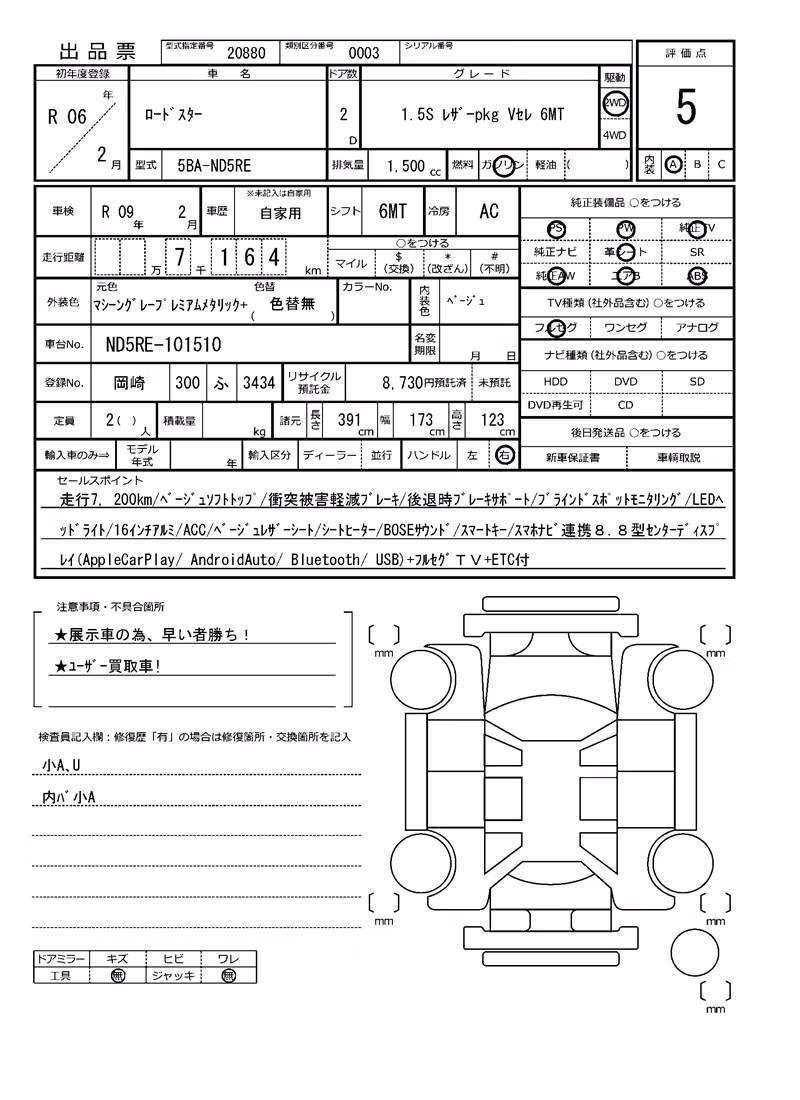 出品票 型式指定番号 20880 類別区分番号 0003 シリアル番号
評価点
5
内装 A B C
初年度登録 車名 ドア数 グレード 駆動
R 06 年 2 月 ロードスター 2 D 1.5S レザーpkg Vセレ 6MT 2WD 4WD
型式 5BA-ND5RE 排気量 1,500 cc 燃料 ガソリン 軽油 ( )
車検 R 09 年 2 月 車歴 ※未記入は自家用 自家用 シフト 6MT 冷房 AC
走行距離 万 7 千 1 6 4 km ○をつける マイル $(交換) *(改ざん) #(不明)
外装色 元色 マシーングレープレミアムメタリック+ 色替 ( 色替無 ) カラーNo. 内装色 ベージュ
車台No. ND5RE-101510 名変期限 月 日
登録No. 岡崎 300 ふ 3434 リサイクル預託金 8,730円預託済 未預託
定員 2( ) 人 積載量 kg 諸元 長さ 391 cm 幅 173 cm 高さ 123 cm
輸入車のみ⇒ モデル年式 年 輸入区分 ディーラー 並行 ハンドル 左 右
純正装備品 ○をつける
PS PW 純正TV
純正ナビ 革シート SR
純正AW エアB ABS
TV種類(社外品含む) ○をつける
フルセグ ワンセグ アナログ
ナビ種類(社外品含む) ○をつける
HDD DVD SD
DVD再生可 CD
後日発送品 ○をつける
新車保証書 車輌取説
セールスポイント
走行7,200km/ベージュソフトトップ/衝突被害軽減ブレーキ/後退時ブレーキサポート/ブラインドスポットモニタリング/LEDヘ
ッドライト/16インチアルミ/ACC/ベージュレザーシート/シートヒーター/BOSEサウンド/スマートキー/スマホナビ連携8.8型センターディスプ
レイ(AppleCarPlay/ AndroidAuto/ Bluetooth/ USB)+フルセグTV+ETC付
注意事項・不具合箇所
★展示車の為、早い者勝ち!
★ユーザー買取車!
検査員記入欄:修復歴「有」の場合は修復箇所・交換箇所を記入
小A、U
内バ小A
ドアミラー キズ ヒビ ワレ
工具 無 ジャッキ 無
mm mm
mm mm
mm